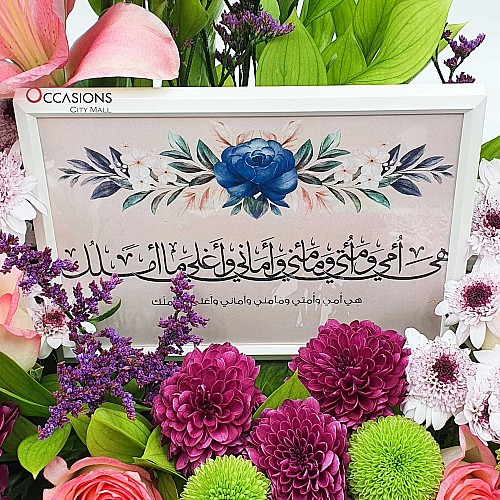 OCCASIONS
CITY MALL
هي أمي وأمتي ومأمني وأماني وأغلى ما أملك
هي أمي وأمتي ومأمني وأماني وأغلى ما أملك